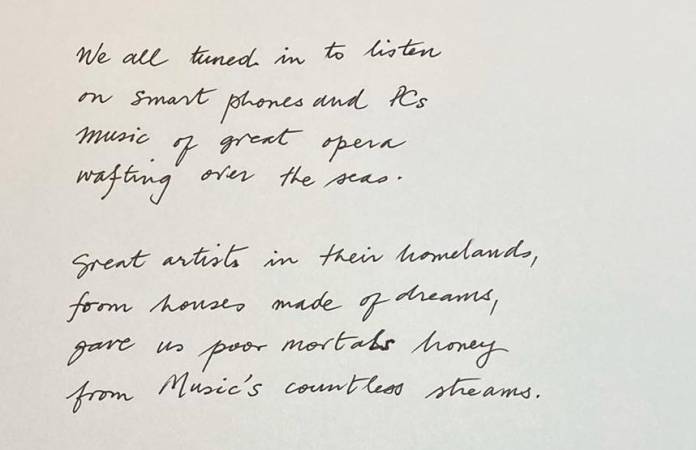 We all tuned in to listen
on smart phones and PCs
music of great opera
wafting over the seas.
Great artists in their homelands,
from houses made of dreams,
gave us poor mortals honey
from Music's countless streams.